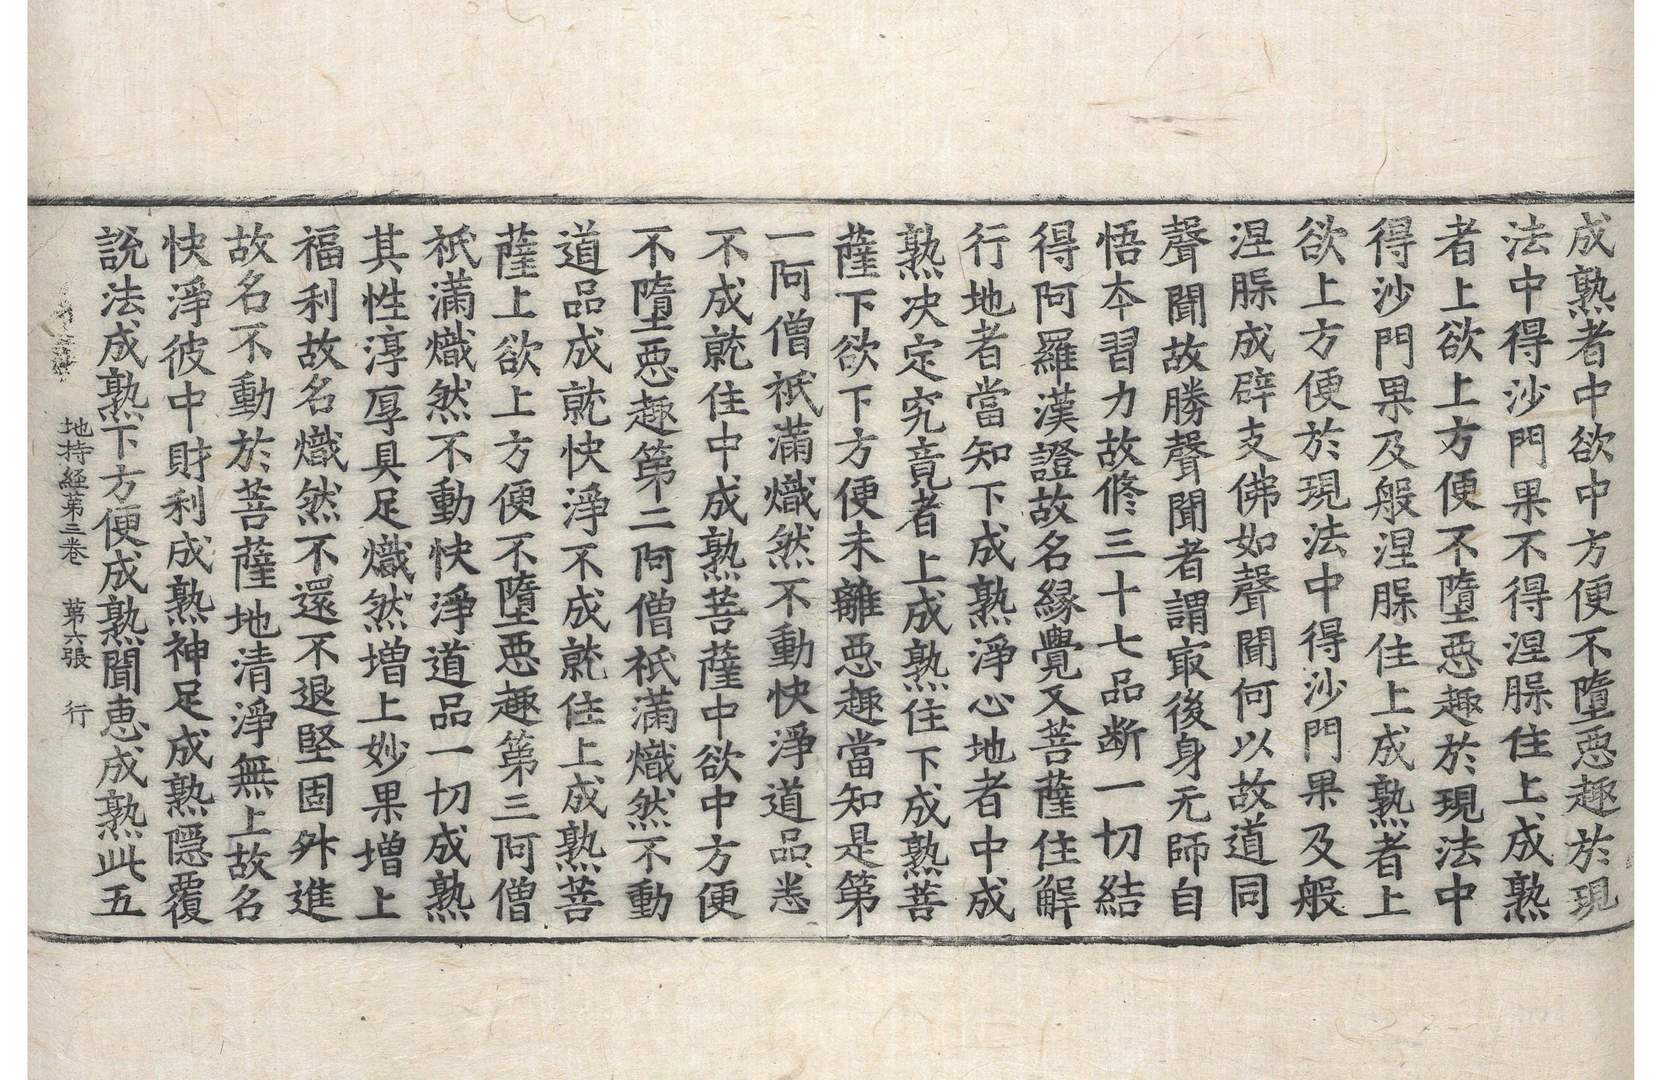 成熟者中欲中方便不墮惡趣於現
法中得沙門果不得涅脲住上成熟
者上欲上方便不墮惡趣於現法中
得沙門果及般涅脲住上成熟者上
欲上方便於現法中得沙門果及般
涅脲成辟支佛如聲聞何以故道同
聲聞故勝聲聞者謂㝡後身无師自
悟夲習力故脩三十七品断一切結
得阿羅漢證故名縁覺又菩薩住解
行地者當知下成熟淨心地者中成
熟決定究竟者上成熟住下成熟菩
薩下欲下方便未離惡趣當知是第
一阿僧祇滿熾然不動快淨道品悉
不成就住中成熟菩薩中欲中方便
不墮惡趣第二阿僧祇滿熾然不動
道品成就快淨不成就住上成熟菩
薩上欲上方便不墮惡趣第三阿僧
祇滿熾然不動快淨道品一切成熟
其性淳厚具足熾然增上妙果增上
福利故名熾然不還不退堅固升進
故名不動於菩薩地清淨無上故名
快淨彼中財利成熟神足成熟隱覆
說法成熟下方便成熟聞恵成熟此五
地持経第三卷 第六張 行